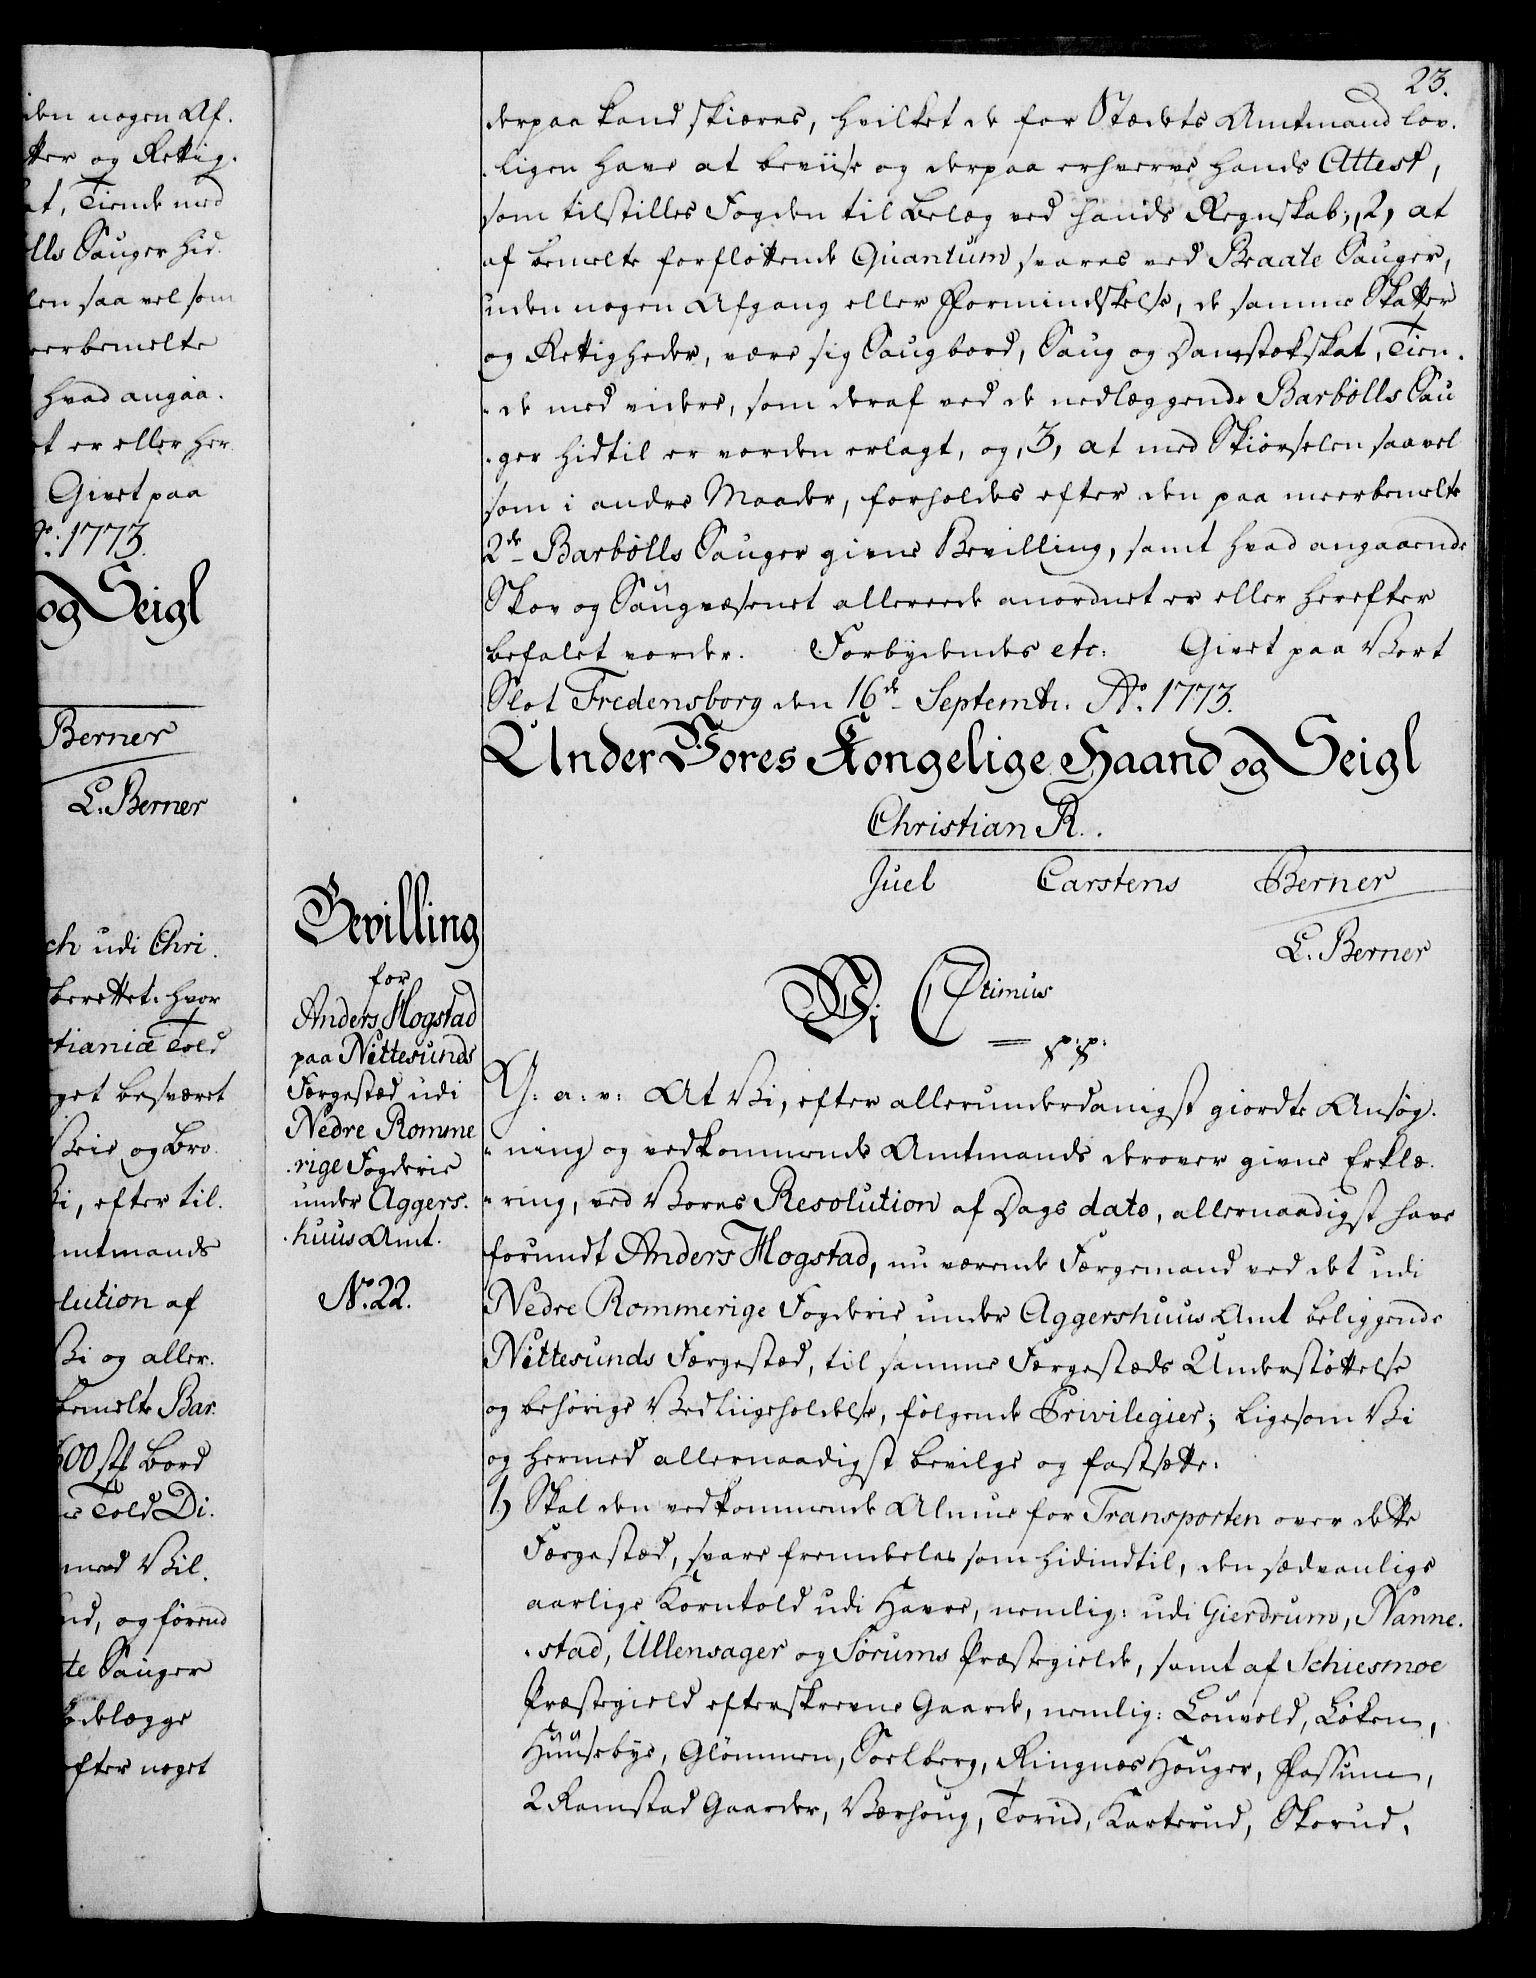 den nogen Af.
tter og Rettig.
at, Tiende med
lls Sauger hid.
len saa vel som
eerbemelte
hvad angaa.
et er eller her
Givet paa
Aº: 1773.
og Seigl
Berner
L. Berner
ch udi Chri.
berettet: hvor
tianiæ Told
get besværet
Veie og Bro
Vi, efter til.
mtmands
lution af
Vi og aller.
bemelte Bar.
600 stk Bord
Told Di.
med Vil.
nd, og førend
te Sauger
ødelægge
fter noget
23.
derpaa kand skiæres, hvilket de for Stædets Amtmand lov.
ligen have at beviise og derpaa erhverve hands Attest,
som tilstilles Fogden til Belæg ved hands Regnskab; 2, at
af bemelte forflottende Quantum svares ved Braate Sauger,
uden nogen Afgang eller Formindskelse, de samme Skatter
og Rettigheder, være sig Saugbord, Saug og Damstokskat, Tien.
de med videre, som deraf ved de nedlæggende Barbølls Sau
ger hidtil er vorden erlagt, og, 3, at med Skiørselen saavel
som i andre Maader, forholdes efter den paa meerbemelte
2de Barbølls Sauger givne Bevilling, samt hvad angaaende
Skov og Saugvæsenet allereede anordnet er eller herefter
befalet vorder. Forbydendes etc: Givet paa Vort
Slot Fredensborg den 16de Septembr. Aº. 1773.
Under Vores Kongelige Haand og Seigl
Christian R..
Juel Carstens Berner
L. Berner
Bevilling
for
Anders Hogstad
paa Nittesunds
Færgestæd udi
Nedre Romme
rige Fogderie
under Aggers.
huus Amt.
No. 22.
Vi C 7timus
p: p:
G: a: v: At Vi, efter allerunderdanigst giordte Ansøg.
ning og vedkommende Amtmands derover givne Erklæ.
ring, ved Vores Resolution af Dags dato, allernaadigst have
forundt Anders Hogstad, nu værende Færgemand ved det udi
Nedre Rommerige Fogderie under Aggershuus Amt beliggende
Nittesunds Færgestæd, til samme Færgestæds Understøttelse
og behørige Vedliigeholdelse, følgende Privilegier; ligesom Vi
og hermed allernaadigst bevilge og fastsætte:
1) Skal den vedkommende Almue for Transporten over dette
Færgestæd, svare fremdeles som hidindtil, den sædvanlige
aarlige Korntold udi Havre, nemlig: udi Gierdrum, Nanne.
stad, Ullensager og Sørums Præstegielde, samt af Schiesmoe
Præstegield efterskrevne Gaarde, nemlig: Louvold, Løken,
Huusebye, Glommen, Soelberg, Ringnæs Houger, Fossum,
2 Ramstad Gaarder, Værhoug, Torud, Karterud, Skorud,